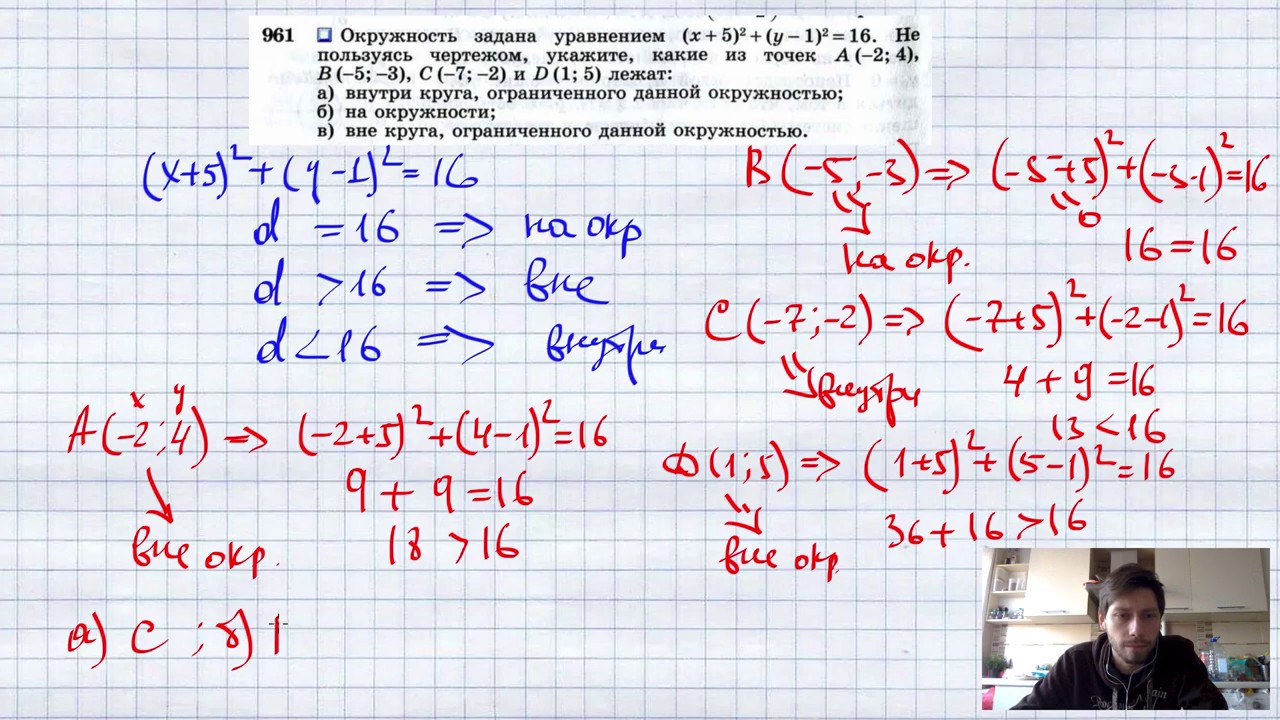 961 Окружность задана уравнением (x + 5)² + (y − 1)² = 16. Не
пользуясь чертежом, укажите, какие из точек A (−2; 4),
B (−5; −3), C (−7; −2) и D (1; 5) лежат:
а) внутри круга, ограниченного данной окружностью;
б) на окружности;
в) вне круга, ограниченного данной окружностью.
(x+5)²+(y-1)²=16
d =16 => на окр
d >16 => вне
d<16 => внутри
x y
A(-2;4) => (-2+5)²+(4-1)²=16
9 + 9 =16
18 >16
вне окр.
B(-5;-3) => (-5+5)²+(-3-1)²=16
0
16=16
на окр.
C(-7;-2) => (-7+5)²+(-2-1)²=16
4+9=16
внутри
13<16
D(1;5) => (1+5)²+(5-1)²=16
36+16>16
вне окр.
а) C ; б)